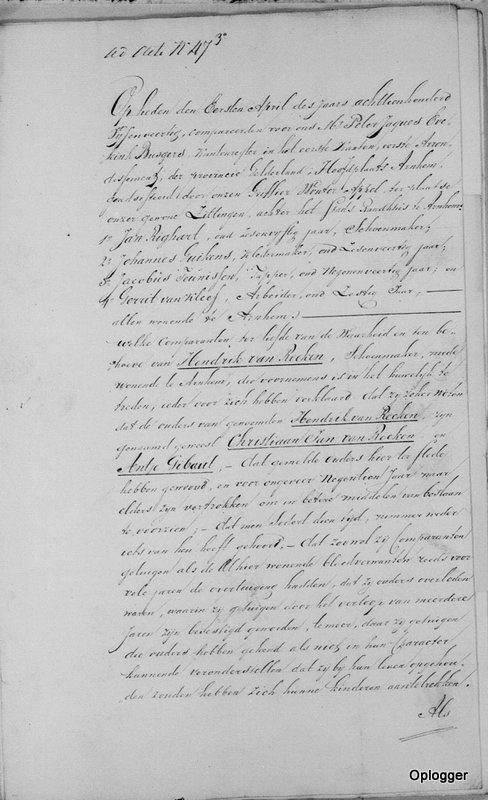 ad Acte No 47 3o
Op heden den Eersten April des jaars achttienhonderd
Vyfenveertig, compareerden voor ons Mr. Peter Jaques Eve
kink Busgers, Kantonregter in het eerste Kanton, eerste Arron
dissement, der Provincie Gelderland, Hoofdplaats Arnhem,
geadsisteerd door onzen Griffier Wouter Appel, ter plaatse
onzer gewone Zittingen, achter het Stads Raadhuis te Arnhem:
1o Jan Righart, oud zesenvyftig jaar, Schoenmaker;
2o Johannes Guikens, Kledermaker, oud Zesenveertig jaar;
3o Jacobus Teunissen, Tapper, oud Negenenveertig jaar; en
4o Gerrit van Kleef, Arbeider, oud Zestig Jaar;
allen wonende te Arnhem:
welke Comparanten ter liefde van de Waarheid en ten be-
hoeve van Hendrik van Reeken, Schoenmaker, mede
wonende te Arnhem, die voornemens is in het huwelijk te
treden, ieder voor zich hebben verklaard dat zy zeker weten
dat de ouders van genoemden Hendrik van Reeken, zyn
genaamd geweest Christiaan Jan van Reeken, en
Antje Gibaut, - dat gemelde ouders hier ter stede
hebben gewoond, en voor ongeveer Negentien Jaar naar
elders zyn vertrokken om in betere middelen van bestaan
te voorzien; - dat men sedert dien tyd, nimmer weder
iets van hen heeft gehoord, - dat zoowel zy Comparanten
getuigen als de Alhier wonende bloedverwanten reeds voor
vele jaren de overtuiging hadden, dat zy ouders overleden
waren, waarin zy getuigen door het verloop van meerdere
jaren zyn bevestigd geworden, te meer, daar zy getuigen
die ouders hebben gekend als niet in hun Caracter
kunnende veronderstellen dat zy by hun leven opgehou-
den zouden hebben zich hunne kinderen aantetrekken.
Als
Oplogger